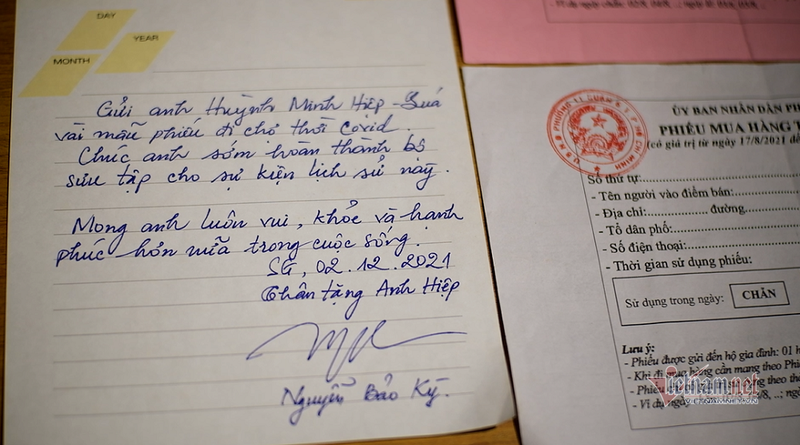 DAY
YEAR
MONTH
Gửi anh Huỳnh Minh Hiệp - 
vài mẫu phiếu đi chợ thời Covid.
Chúc anh sớm hoàn thành bộ
sưu tập cho sự kiện lịch sử này.
Mong anh luôn vui, khỏe và hạnh
phúc hơn nữa trong cuộc sống.
SG, 02.12.2021
Thân tặng Anh Hiệp
Nguyễn Bảo Kỳ.
ỦY BAN NHÂN DÂN PH
PHIẾU MUA HÀNG T
(có giá trị từ ngày 17/8/2021 đế
Số thứ tự:
- Tên người vào điểm bán:
- Địa chỉ: đường.
- Tổ dân phố:
- Số điện thoại:
- Thời gian sử dụng phiếu:
Sử dụng trong ngày: CHẴN
Lưu ý:
- Phiếu được gửi đến hộ gia đình: 01 h
- Khi đi mua hàng cần mang theo Phi
- Phiếu
- Ví dụ ngày
Vietnamnet